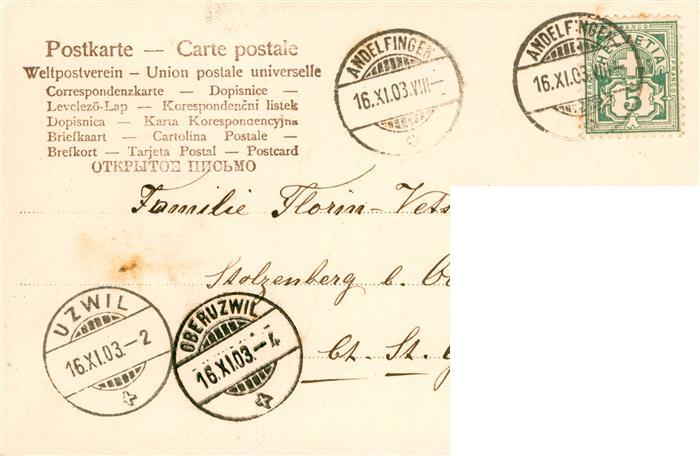 Postkarte — Carte postale
Weltpostverein — Union postale universelle
Correspondenzkarte — Dopisnice —
Levelező-Lap — Korespondenční listek
Dopisnica — Karta Korespondencyjna
Briefkaart — Cartolina Postale —
Brefkort — Tarjeta Postal — Postcard
ОТКРЫТОЕ ПИСЬМО
ANDELFINGEN
16.XI.03.VIII—
ANDELFINGEN
16.XI.03.VIII
FRANCO
HELVETIA
5
Familie Florin-
Stolzenberg b.
Ct. St.
UZWIL
16.XI.03.-2
OBERUZWIL
16.XI.03.-4